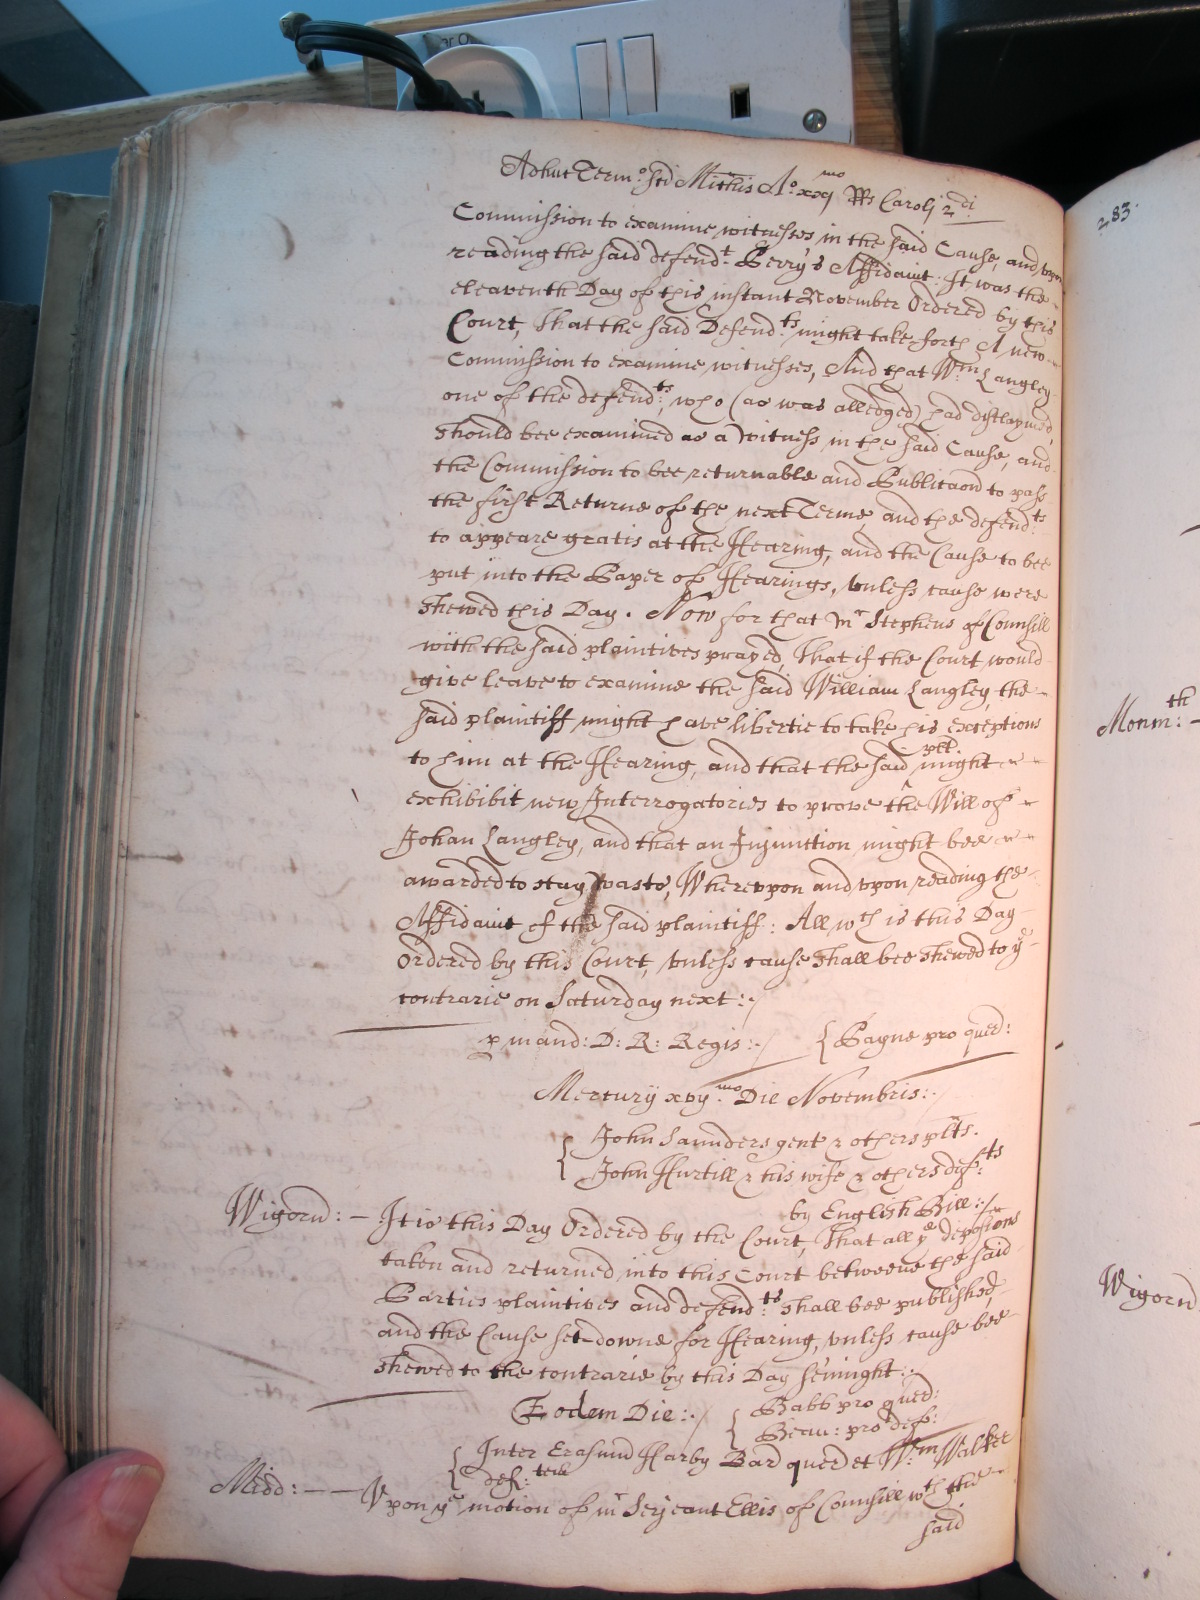 Adhuc Term:o Sci Michis A:o xxj mo Rs Caroli 2 di
Commission to examine witnesses in the said Cause, and vpon
reading the said defend:t Berry's Affidauit: It was the
eleaventh Day of this instant November Ordered by this
Court, That the said Defend:ts might take forth A new
Commission to examine witnesses, And that Wm Langley
one of the defend:ts, who (as was alledged) had disclaymed,
should bee examined as a witness in the said Cause, and
the Commission to bee returnable and Publicaon to pass
the first Returne of the next Terme, and the defend:ts
to appeare gratis at the Hearing, and the Cause to bee
put into the Paper of Hearings, vnless cause were
shewed this Day. Now for that Mr Stephens of Counsill
with the said plaintives prayed, That if the Court would
give leave to examine the said William Langley, the
said plaintiff might have libertie to take his exceptions
to him at the Hearing, and that the said plt might
exhibibit new Interrogatories to prove the Will of
Johan Langley, and that an Injunction might bee
awarded to stay waste, Wherevpon and vpon reading the
Affidauit of the said plaintiff: All wch is this Day
Ordered by this Court, vnless cause shall bee shewed to ye
contrarie on Saturday next:
p mand: D: R: Regis: { Payne pro quer:
Mercurij xvij mo Die Novembris:
{ John Saunders gent & others plts.
John Hurtill & his wife & others def:ts
by English Bill:
Wigorn: - It is this Day Ordered by the Court, That all ye deposions
taken and returned into this Court betweene the said
Parties plaintives and defend:ts shall bee published,
and the Cause set downe for Hearing, vnless cause bee
shewed to the contrarie by this Day sennight:
Eodem Die: { Babb pro quer:
Beau: pro def:
{ Inter Erasmd Harby Bar quer et Wm Walker
def:
Midd: - - Vpon ye motion of mr Serjeant Ellis of Counsill wth the
said
283.
Monm:th -
Wigorn